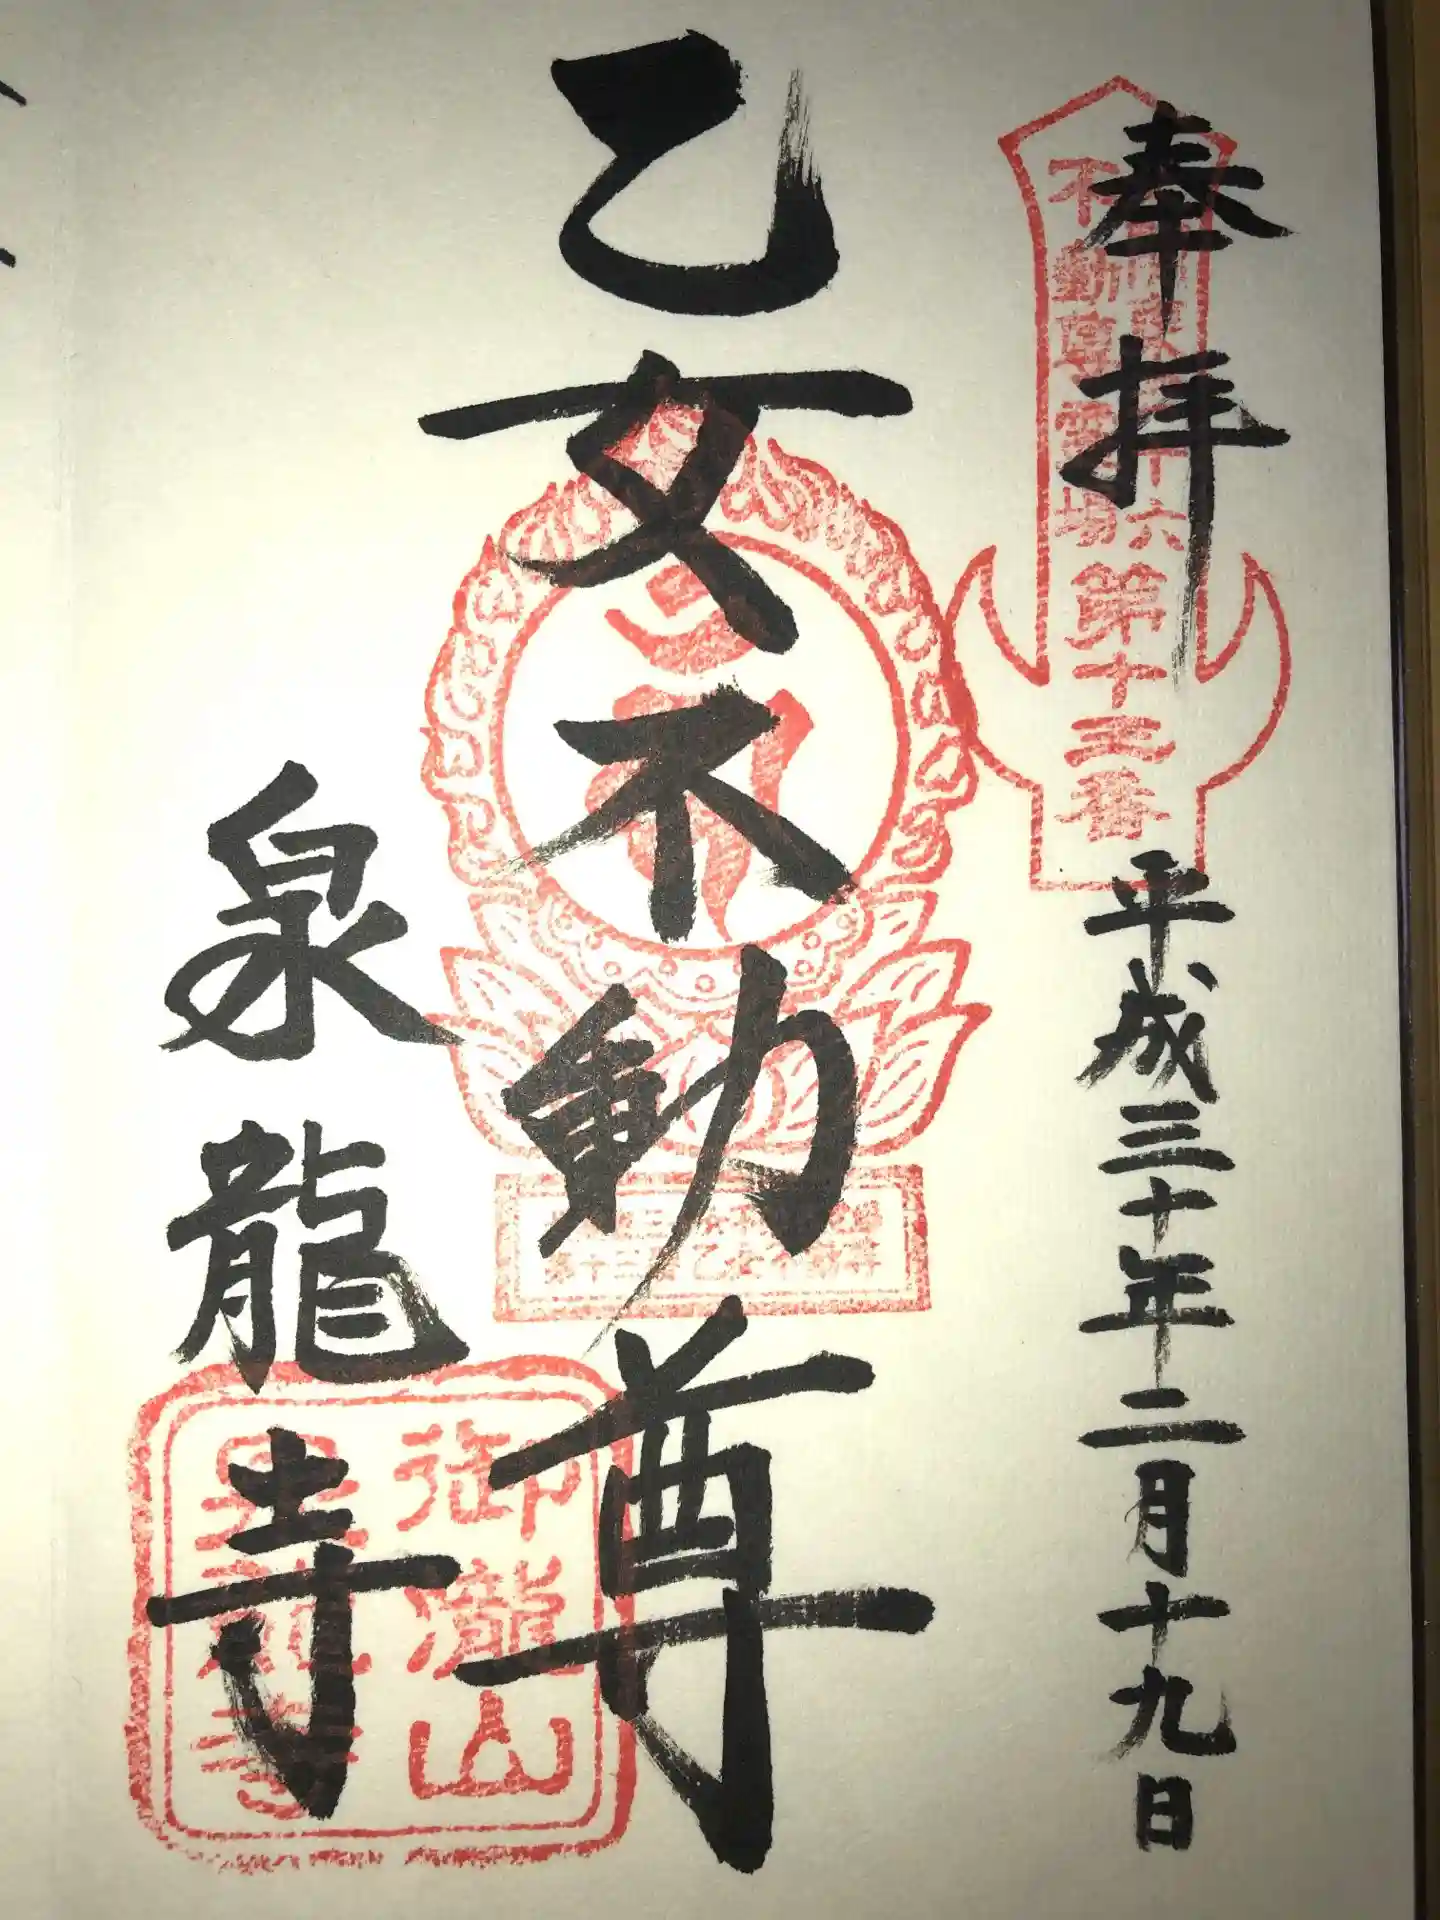 奉拝
平成三十年二月十九日
不動尊霊場
第十三番
乙女不動尊
泉龍寺
御瀧山
泉龍寺